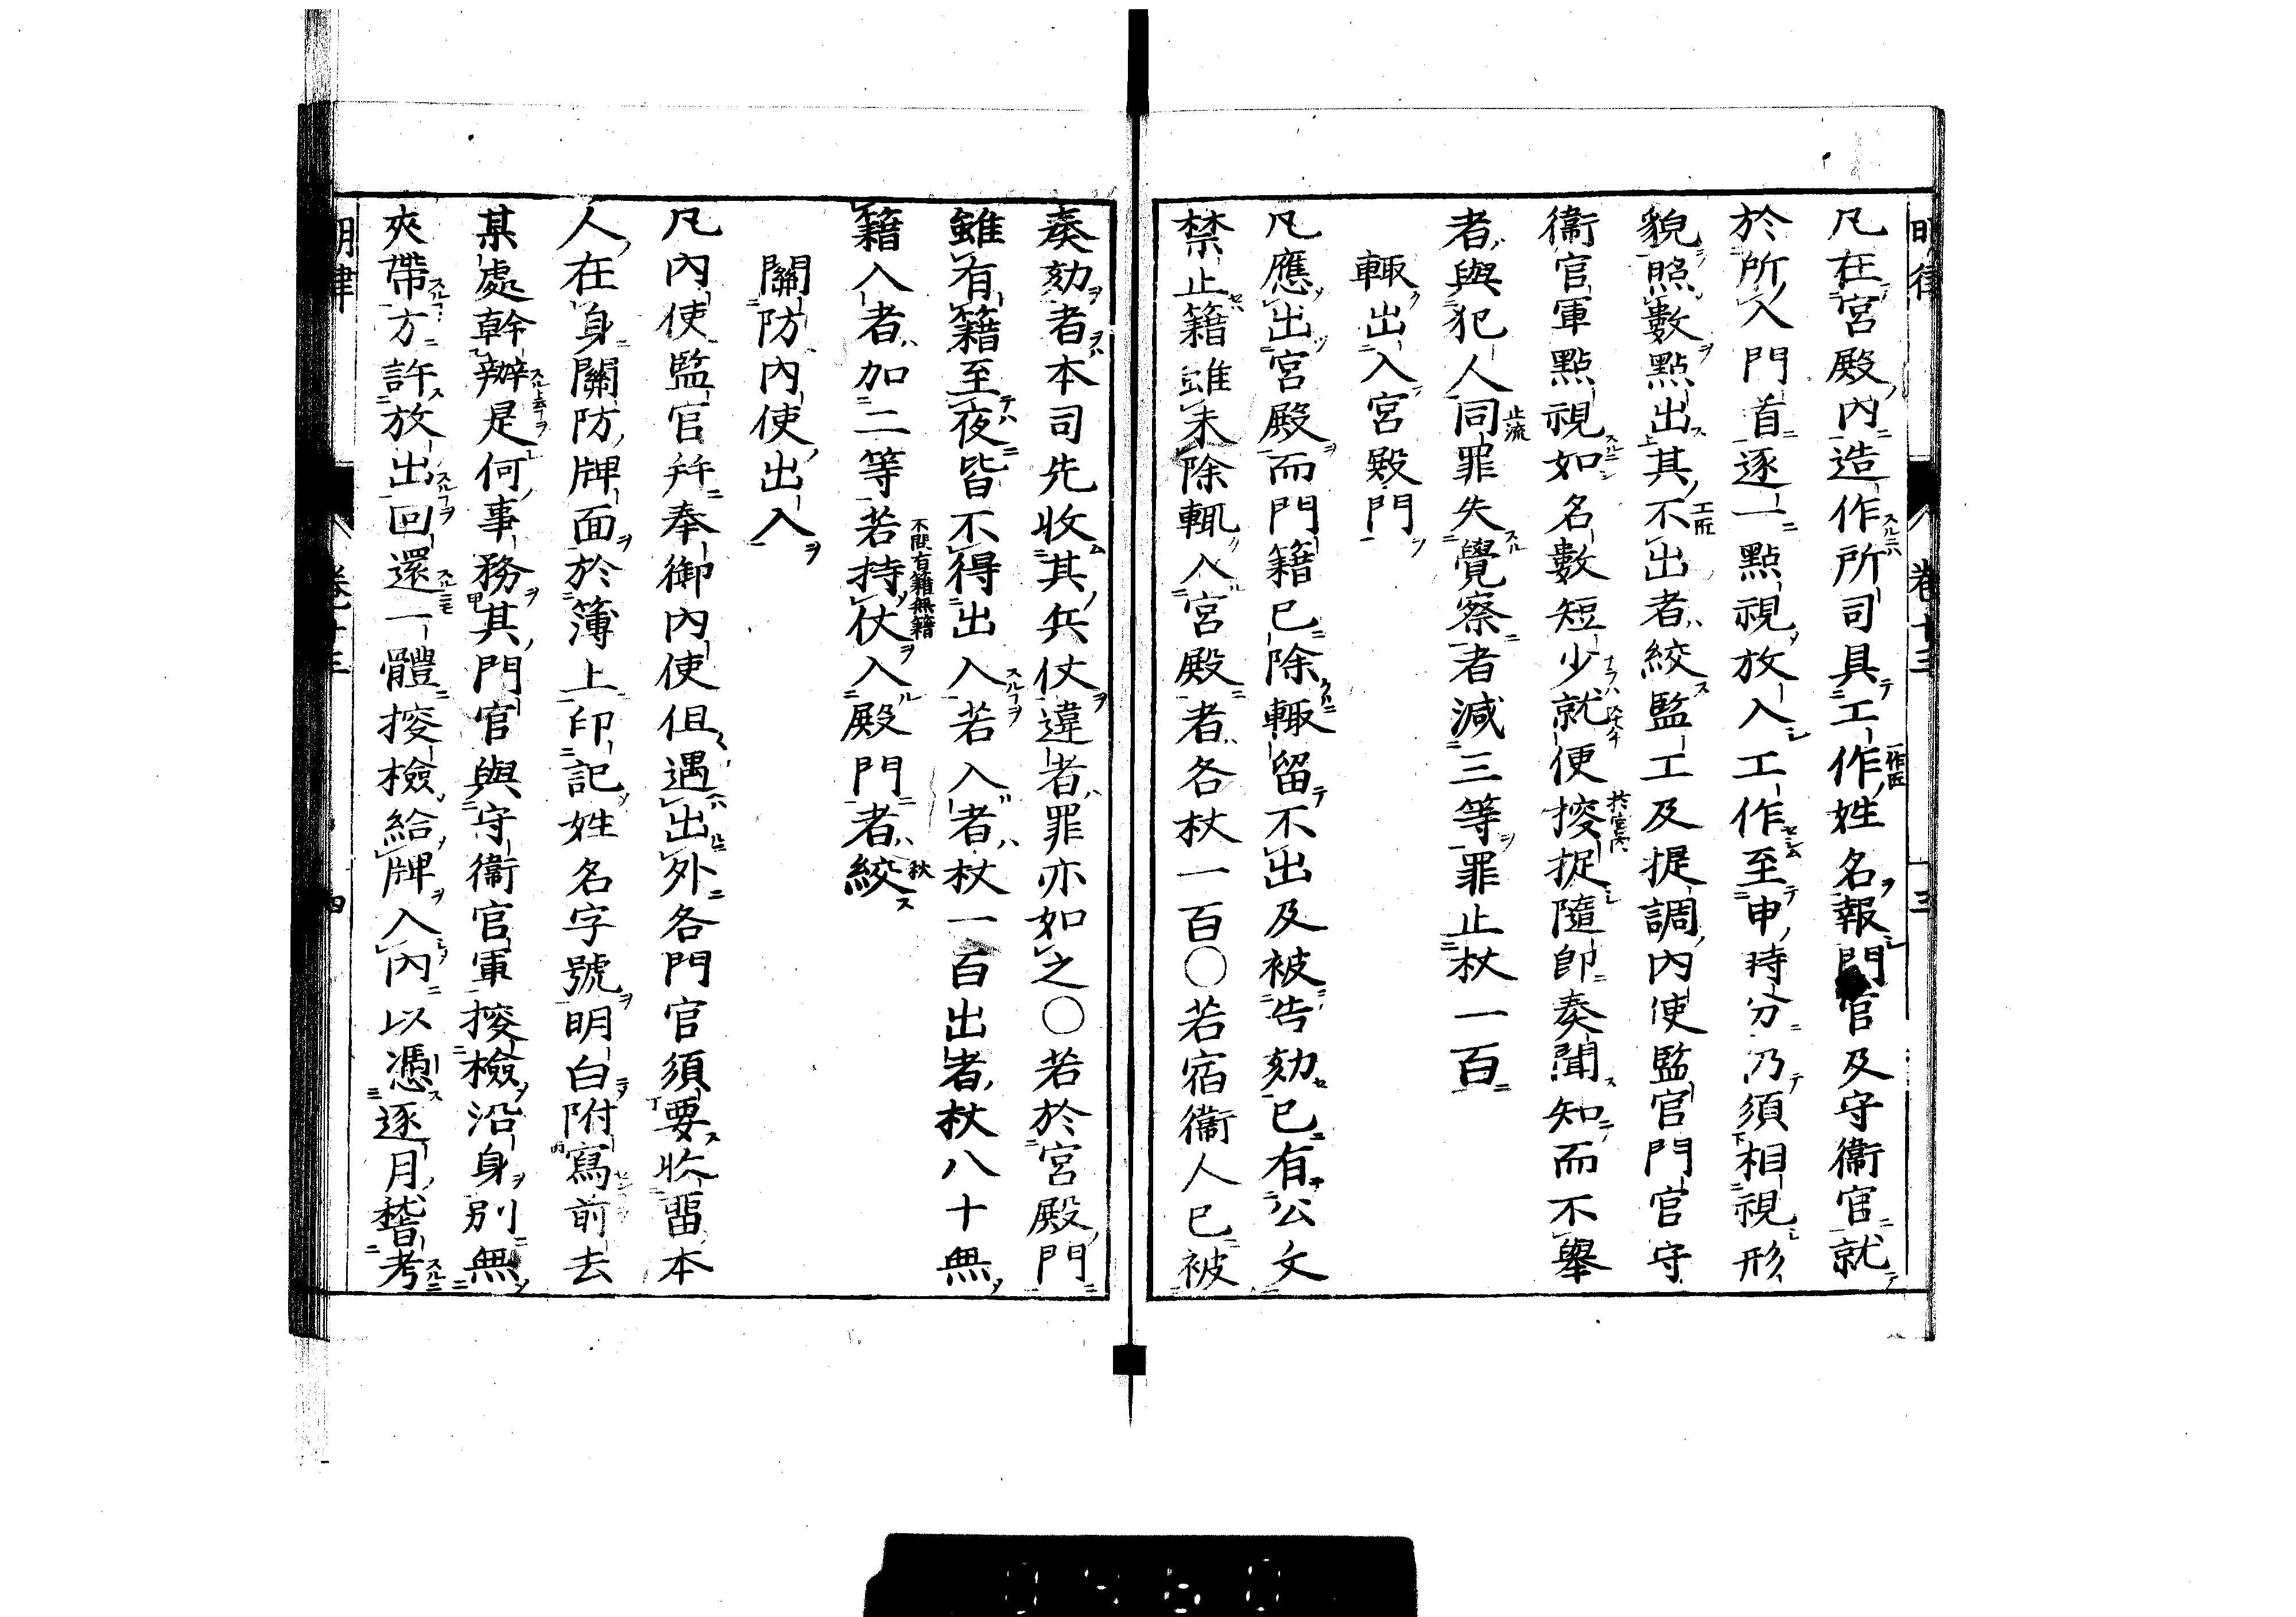 明律 卷十三 三
凡在宮殿內造作所司具工作姓名報門官及守衞官就
於所入門首逐一點視放入工作至申時分乃須相視形
貌照數點出其不出者絞監工及提調內使監官門官守
衞官軍點視如名數短少就便搜捉隨卽奏聞知而不擧
者與犯人同罪失覺察者減三等罪止杖一百
輒出入宮殿門
凡應出宮殿而門籍已除輒留不出及被告劾已有公文
禁止籍雖未除輒入宮殿者各杖一百○若宿衞人已被
奏劾者本司先收其兵仗違者罪亦如之○若於宮殿門
雖有籍至夜皆不得出入若入者杖一百出者杖八十無
籍入者加二等若持仗入殿門者絞
關防內使出入
凡內使監官幷奉御內使但遇出外各門官須要收留本
人在身關防牌面於簿上印記姓名字號明白附寫前去
某處幹辦是何事務其門官與守衞官軍搜檢沿身別無
夾帶方許放出回還一體搜檢給牌入內以憑逐月稽考
明律 卷十三 四